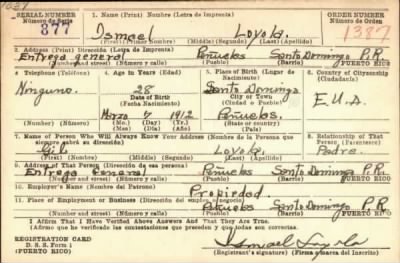 SERIAL NUMBER
Número de Serie
877
1. Name (Print) Nombre (Letra de Imprenta)
Ismael Loyola.
(First) (Primer Nombre) (Middle) (Segundo) (Last) (Apellido)
ORDER NUMBER
Número de Orden
1387
2. Address (Print) Dirección (Letra de Imprenta)
Entrega general Peñuelas Santo Domingo P.R.
(Number and street) (Número y calle) (Pueblo) (Barrio) PUERTO RICO
3. Telephone (Teléfono)
Ninguno.
4. Age in Years (Edad)
28
Date of Birth
(Fecha Nacimiento)
Marzo 7 1912
(Mo.) (Day) (Yr.)
(Mes) (Día) (Año)
5. Place of Birth (Lugar de Nacimiento)
Santo Domingo
City or Town
(Ciudad o Pueblo)
Peñuelas.
(State or country)
(Estado o País)
6. Country of Citizenship
(Ciudadanía)
E.U.A.
7. Name of Person Who Will Always Know Your Address (Nombre de la Persona que siempre sabrá su dirección)
Loyola.
(First) (Nombre) (Middle) (Segundo) (Last) (Apellido)
8. Relationship of That Person (Parentesco)
Padre.
9. Address of That Person (Dirección de esa persona)
Entrega General Peñuelas Santo Domingo P.R.
(Number and street) (Número y calle) (Pueblo) (Barrio) PUERTO RICO
10. Employer's Name (Nombre del Patrono)
Propiedad.
11. Place of Employment or Business (Dirección del empleo o negocio)
Peñuelas Santo Domingo P.R.
(Number and street) (Número y calle) (Pueblo) (Barrio) PUERTO RICO
I Affirm That I Have Verified Above Answers and That They Are True.
(Afirmo que he verificado las contestaciones que preceden y que todas son correctas.)
REGISTRATION CARD
D. S. S. Form 1
(PUERTO RICO)
Ismael Loyola
(Registrant's signature) (Firma o marca del Inscrito)